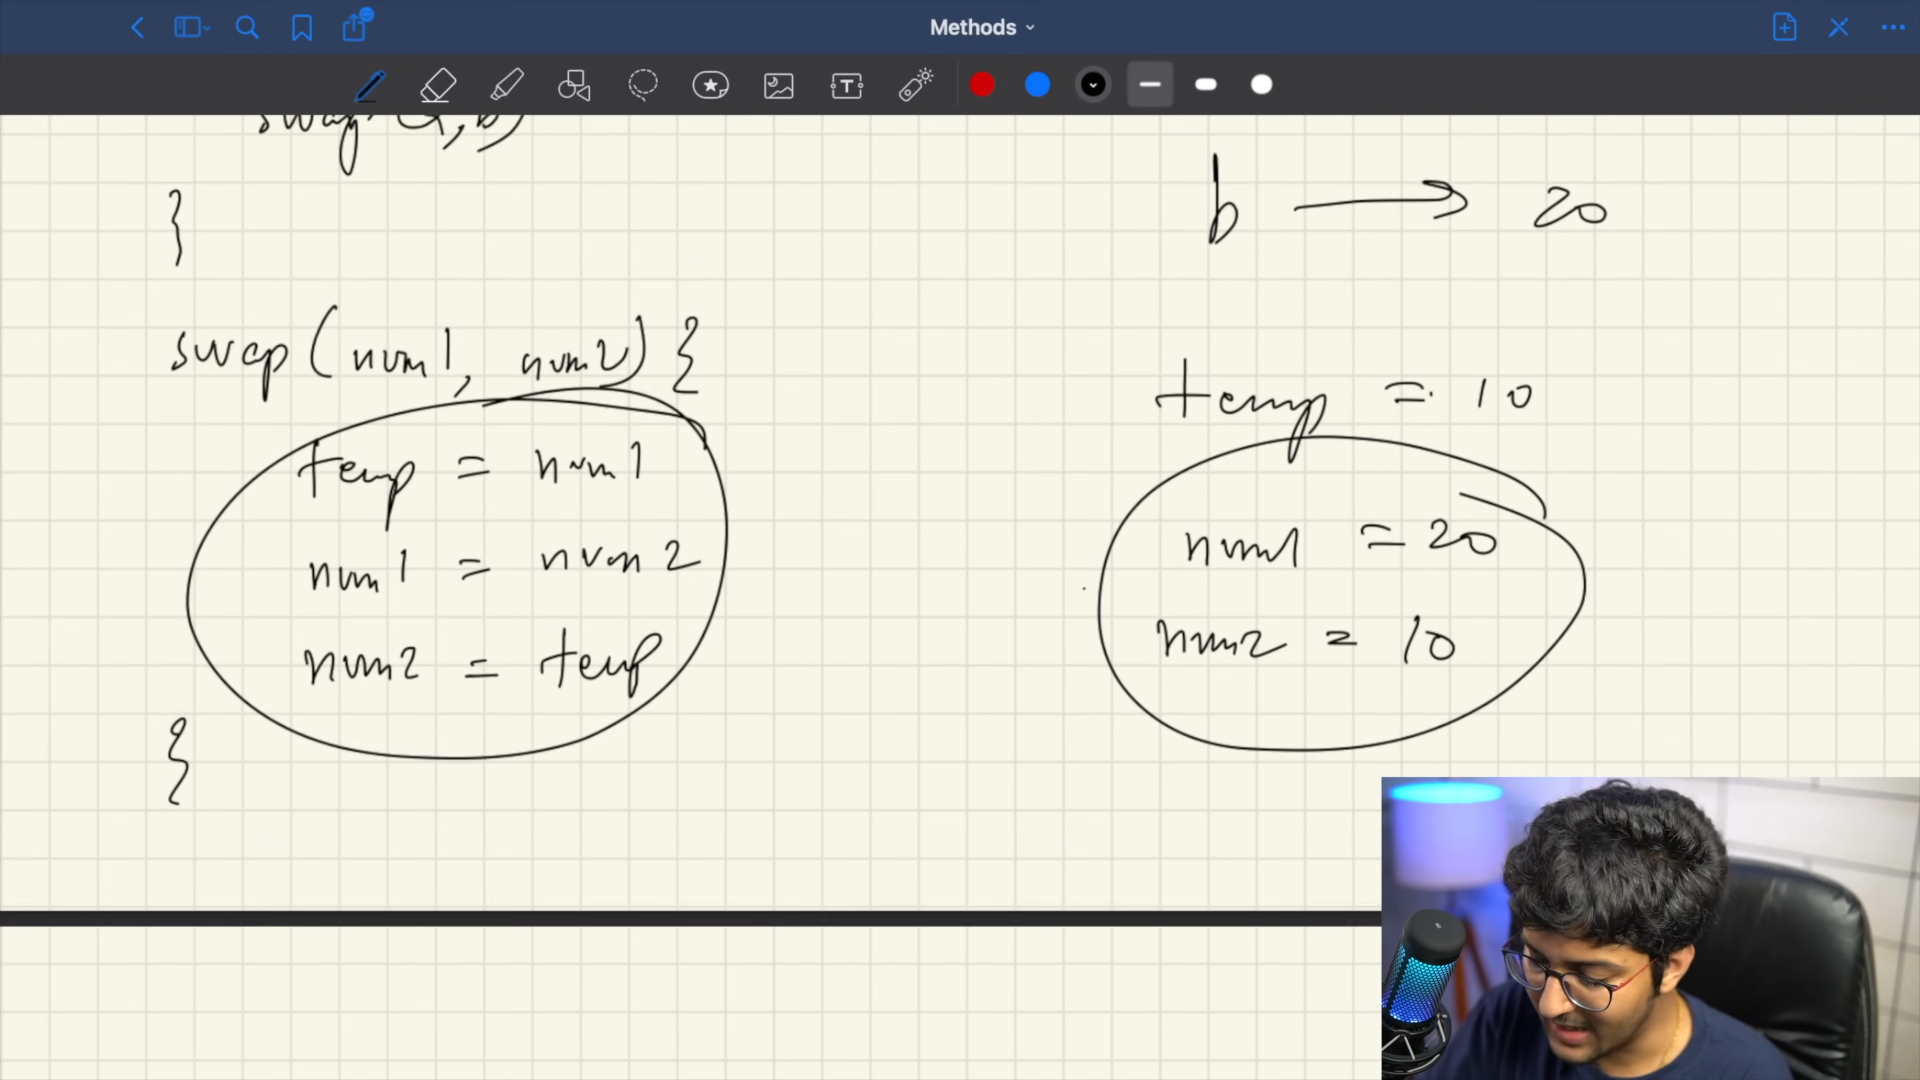 Methods
swap(a,b)
}
b → 20
swap(num1, num2) {
temp = num1
num1 = num2
num2 = temp
}
temp = 10
num1 = 20
num2 = 10